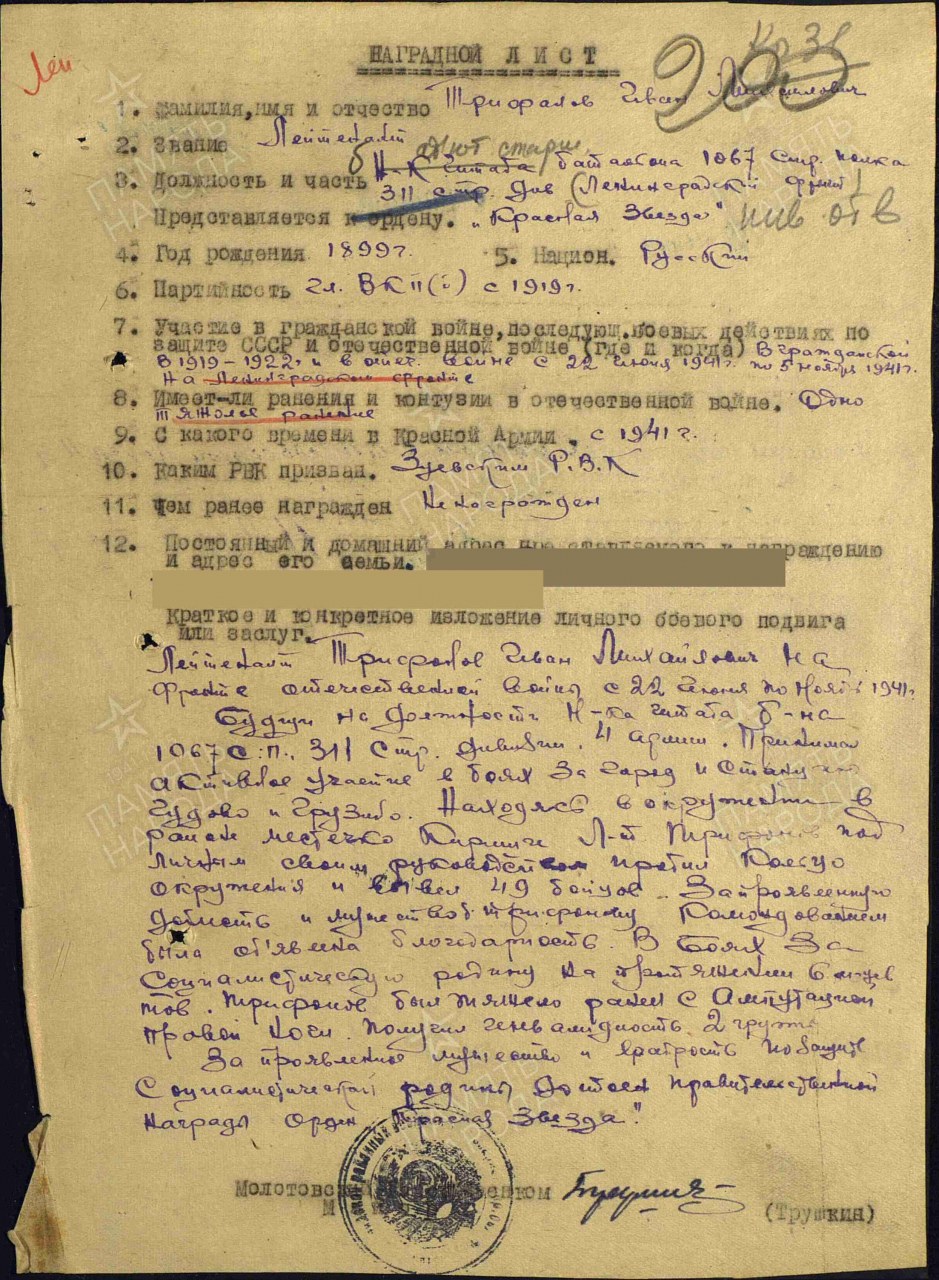 НАГРАДНОЙ ЛИСТ
1. Фамилия, имя и отчество Трифонов Иван Михайлович
2. Звание Лейтенант
адъют старш
3. Должность и часть Н-к штаба батальона 1067 стр. полка
311 стр. див (Ленинградский фронт)
Представляется к ордену. „Красная Звезда"
4. Год рождения 1899г. 5. Национ. Русский
6. Партийность Чл. ВКП(б) с 1919г.
7. Участие в гражданской войне, последующ. боевых действиях по
защите СССР и отечественной войне (где и когда) В гражданской
в 1919-1922г. и в отеч. войне с 22 июня 1941г. по 5 ноября 1941г.
на Ленинградском фронте
8. Имеет-ли ранения и контузии в отечественной войне. Одно
тяжолое ранение
9. С какого времени в Красной Армии. с 1941г.
10. Каким РВК призван. Зуевским Р.В.К
11. Чем ранее награжден Не награжден
12. Постоянный и домашний адрес представляемого к награждению
и адрес его семьи.
Краткое и конкретное изложение личного боевого подвига
или заслуг.
Лейтенант Трифонов Иван Михайлович на
фронте отечественной войны с 22 июня по ноябрь 1941г.
Будучи на должности Н-ка штаба б-на
1067 с.п., 311 стр. дивизии. 4 армии. Принимал
активное участие в боях за город и станцию
Чудово и Грузино. Находясь в окружении в
районе местечко Кириши Л-т Трифонов под
личным своим руководством прошел кольцо
окружения и вывел 49 бойцов. За проявленную
доблесть и мужество т. Трифонову Командованием
была объявлена благодарность. В боях за
Социалистическую родину на протяжении 6 месяцев
тов. Трифонов был тяжело ранен с Ампутацией
правой ноги. Получил инвалидность 2 группы
За проявленное мужество и храбрость по защите
Социалистической родины достоен правительственной
награды Орден „Красная Звезда".
Молотовский
(Трушкин)